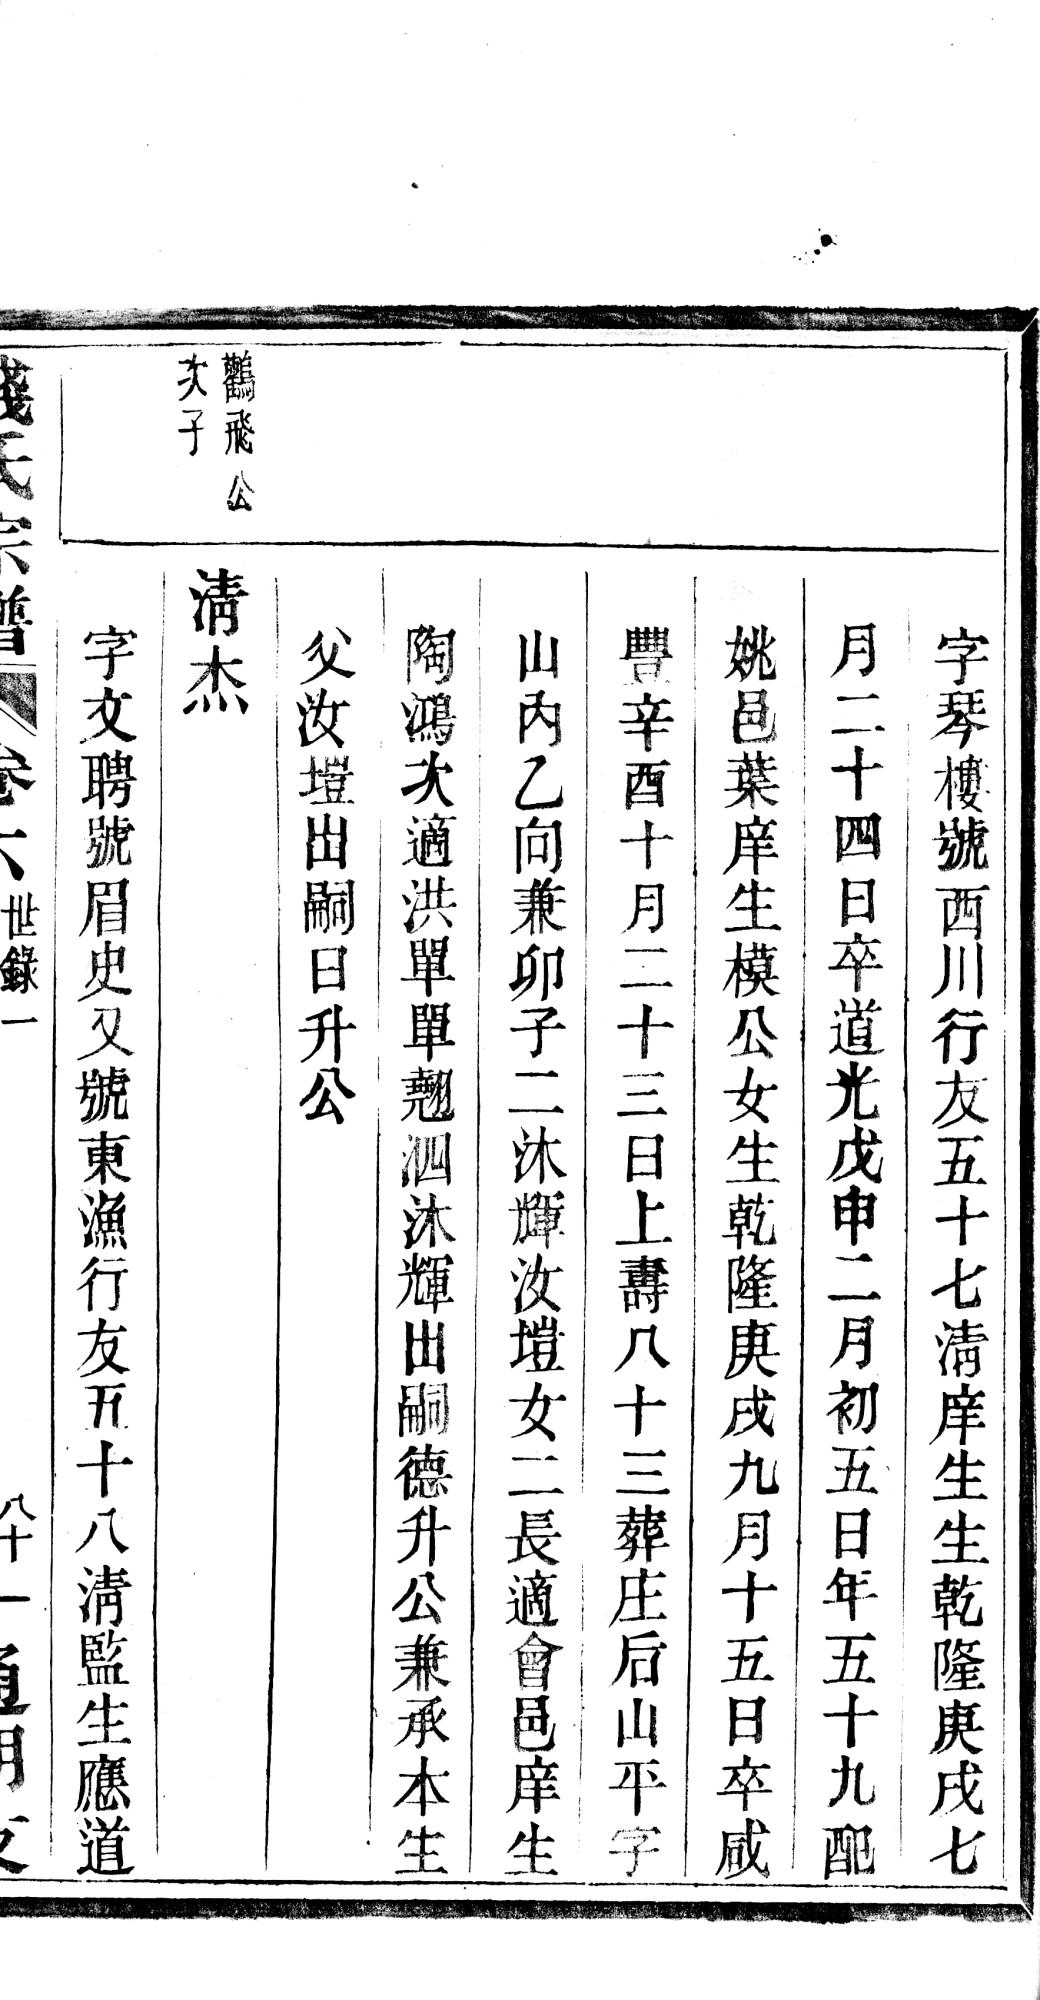 字琴樓號西川行友五十七清庠生生乾隆庚戌七
月二十四日卒道光戊申二月初五日年五十九配
姚邑葉庠生模公女生乾隆庚戌九月十五日卒咸
豐辛酉十月二十三日上壽八十三葬庄后山平字
山內乙向兼卯子二沐輝汝塏女二長適會邑庠生
陶鴻次適洪單單翹泗沐輝出嗣德升公兼承本生
父汝塏出嗣日升公
鸛飛公
次子
清杰
字文聘號眉史又號東漁行友五十八清監生應道
錢氏宗譜
卷六
世錄一
八十一
通明支